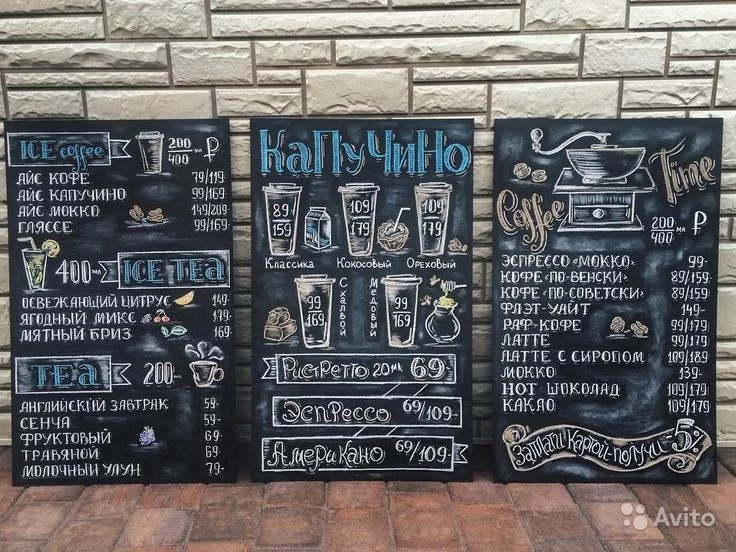 ICE coffee 200/400 ₽
АЙС КОФЕ 79/119-
АЙС КАПУЧИНО 99/169-
АЙС МОККО 149/209-
ГЛЯССЕ 99/169-
400 мл ICE TEA
ОСВЕЖАЮЩИЙ ЦИТРУС 149-
ЯГОДНЫЙ МИКС 179-
МЯТНЫЙ БРИЗ 169-
TEA 200 мл
АНГЛИЙСКИЙ ЗАВТРАК 59-
СЕНЧА 59-
ФРУКТОВЫЙ 69-
ТРАВЯНОЙ 69-
МОЛОЧНЫЙ УЛУН 79-
КаПуЧиНо
89/159 109/179 109/179
Классика Кокосовый Ореховый
99/169 С халвой Медовый 99/169
Ристретто 20 мл 69-
Эспрессо 69/109-
Американо 69/109-
Coffee Time
200/400 ₽
ЭСПРЕССО «МОККО» 99-
КОФЕ «ПО-ВЕНСКИ» 89/159
КОФЕ «ПО-СОВЕТСКИ» 89/159
ФЛЭТ-УАЙТ 149-
РАФ-КОФЕ 99/179
ЛАТТЕ 99/179
ЛАТТЕ С СИРОПОМ 109/189
МОККО 139-
HOT ШОКОЛАД 109/179
КАКАО 109/179
Заплати картой-получи 5
Avito